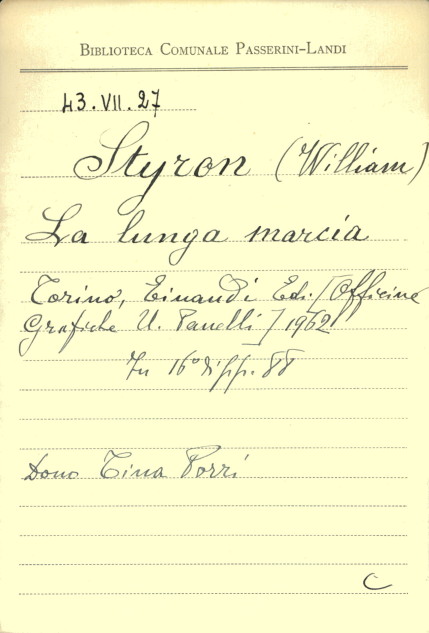 BIBLIOTECA COMUNALE PASSERINI-LANDI
43.VII.27
Styron (William)
La lunga marcia
Torino, Einaudi Ed. [Officine
Grafiche U. Panelli] 1962
In 16° di pp. 88
Dono Tina Porri
C